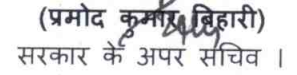 (प्रमोद कुमार बिहारी)
सरकार के अपर सचिव ।